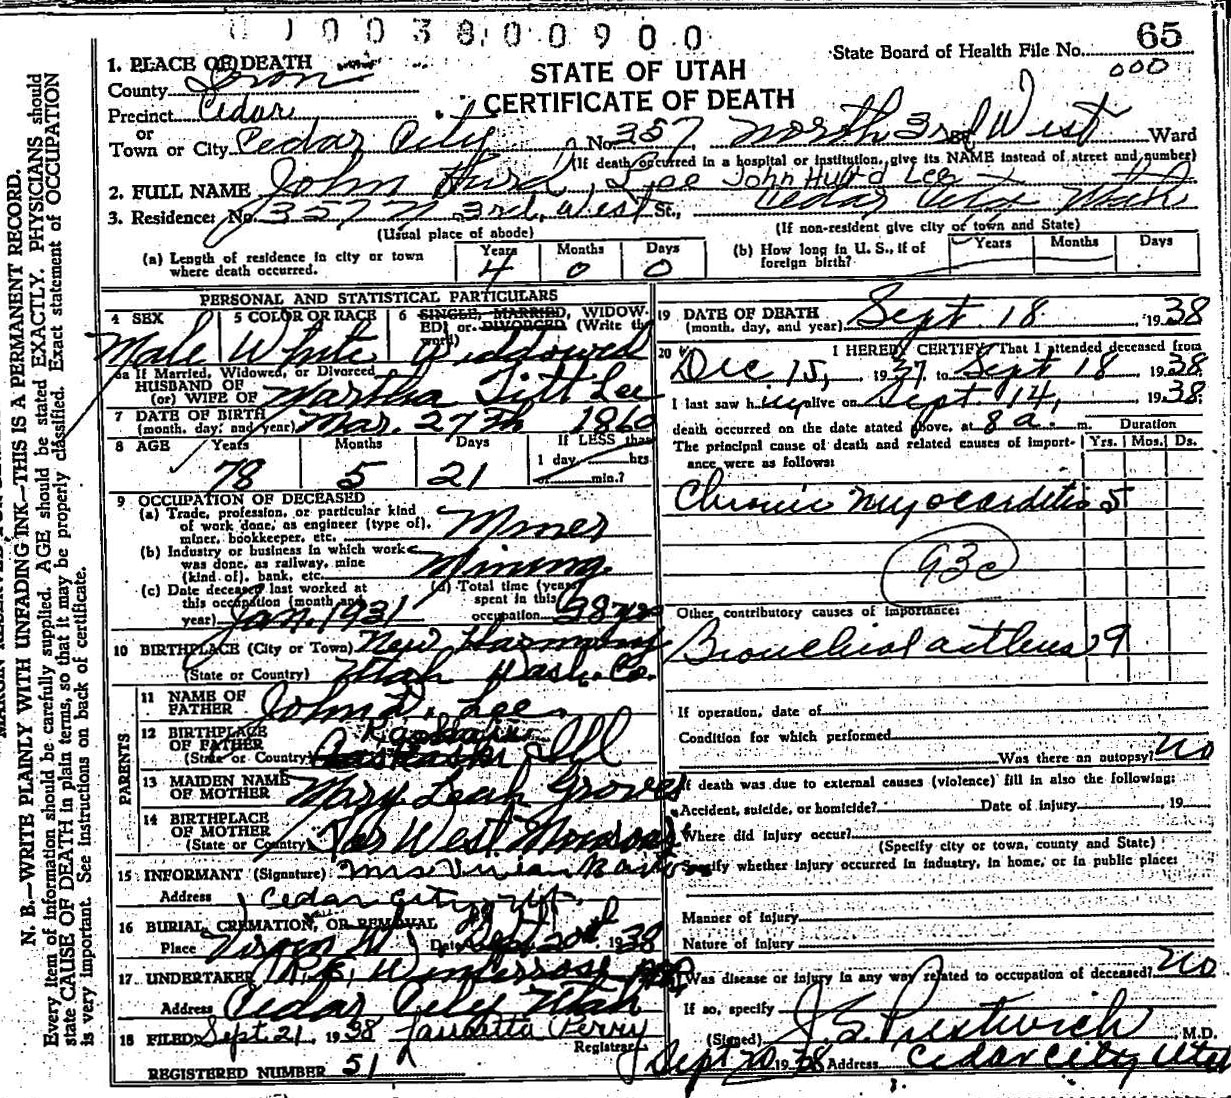 1003800900
State Board of Health File No. 65
000
STATE OF UTAH
CERTIFICATE OF DEATH
1. PLACE OF DEATH
County Iron
Precinct Cedar
or
Town or City Cedar City No. 357 North 3rd St. West Ward
(If death occurred in a hospital or institution, give its NAME instead of street and number)
2. FULL NAME John Hurd Lee John Hurd Lee
3. Residence: No. 357 N. 3rd, West St., Cedar City Utah
(Usual place of abode) (If non-resident give city or town and State)
(a) Length of residence in city or town where death occurred. Years 4 Months 0 Days 0
(b) How long in U. S., if of foreign birth? Years Months Days
PERSONAL AND STATISTICAL PARTICULARS
4 SEX Male
5 COLOR OR RACE White
6 SINGLE, MARRIED, WIDOWED, or DIVORCED (Write the word) Widdowed
6a If Married, Widowed, or Divorced
HUSBAND OF
(or) WIFE OF Martha Titt Lee
7 DATE OF BIRTH
(month, day, and year) Mar. 27th 1860
8 AGE Years 78 Months 5 Days 21 If LESS than 1 day, hrs. or min.?
9 OCCUPATION OF DECEASED
(a) Trade, profession, or particular kind of work done, as engineer (type of), miner, bookkeeper, etc. Miner
(b) Industry or business in which work was done, as railway, mine (kind of), bank, etc. Mining
(c) Date deceased last worked at this occupation (month and year) Jan. 1931
(d) Total time (years) spent in this occupation 38 yrs
10 BIRTHPLACE (City or Town) New Harmony
(State or Country) Utah Wash. Co.
PARENTS
11 NAME OF FATHER John D. Lee
12 BIRTHPLACE OF FATHER
(State or Country) Ill
13 MAIDEN NAME OF MOTHER Mary Leah Groves
14 BIRTHPLACE OF MOTHER
(State or Country) Far West
15 INFORMANT (Signature) Mrs Vivian
Address Cedar City, Ut.
16 BURIAL, CREMATION, OR REMOVAL
Place Date Sept 20th 1938
17 UNDERTAKER
Address Cedar City Utah
18 FILED Sept. 21 1938 Perry
Registrar
REGISTERED NUMBER 51
19 DATE OF DEATH
(month, day, and year) Sept 18, 1938
20 I HEREBY CERTIFY That I attended deceased from
Dec. 15, 1937, to Sept 18 1938
I last saw him alive on Sept 14, 1938;
death occurred on the date stated above, at 8 a. m. Duration
The principal cause of death and related causes of importance were as follows: Yrs. Mos. Ds.
Chronic Myocarditis 5
93c
Other contributory causes of importance:
Bronchial asthma 29
If operation, date of
Condition for which performed
Was there an autopsy? no
If death was due to external causes (violence) fill in also the following:
Accident, suicide, or homicide? Date of injury , 19
Where did injury occur?
(Specify city or town, county and State)
Specify whether injury occurred in industry, in home, or in public place:
Manner of Injury
Nature of Injury
Was disease or injury in any way related to occupation of deceased? no
If so, specify
(Signed) J. S. Prestwich M.D.
Sept 20 1938 Address Cedar City Utah
N. B.—WRITE PLAINLY WITH UNFADING INK—THIS IS A PERMANENT RECORD.
Every item of information should be carefully supplied. AGE should be stated EXACTLY. PHYSICIANS should
state CAUSE OF DEATH in plain terms, so that it may be properly classified. Exact statement of OCCUPATION
is very important. See instructions on back of certificate.